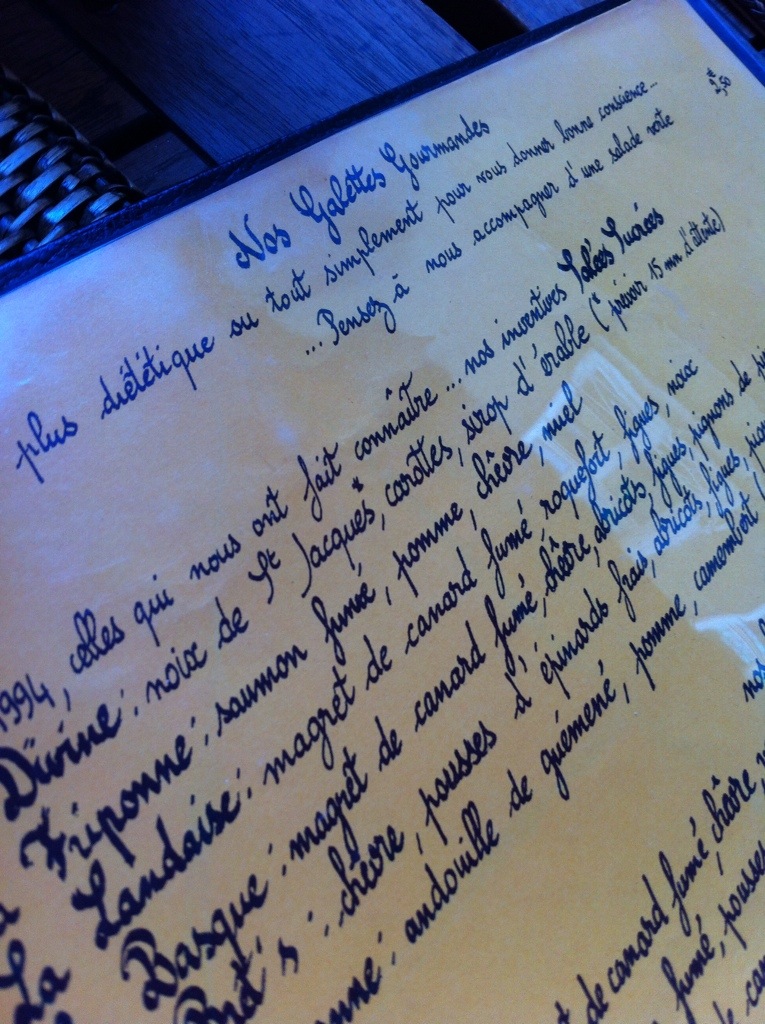 Nos Galettes Gourmandes
plus diététique ou tout simplement pour vous donner bonne conscience...
...Pensez à nous accompagner d'une salade verte 2€50
1994, celles qui nous ont fait connaître... nos inventives Salées Sucrées
Divine : noix de St Jacques*, carottes, sirop d'érable (*prévoir 15 mn d'attente)
Friponne : saumon fumé, pomme, chèvre, miel
La Landaise : magret de canard fumé, roquefort, figues, noix
La Basque : magret de canard fumé, chèvre, abricots, figues, pignons de
Bret's : chèvre, pousses d'épinards frais, abricots, figues,
nne : andouille de guémené, pomme, camembert
nos
de canard fumé, chèvre,
fumé, pousses
de